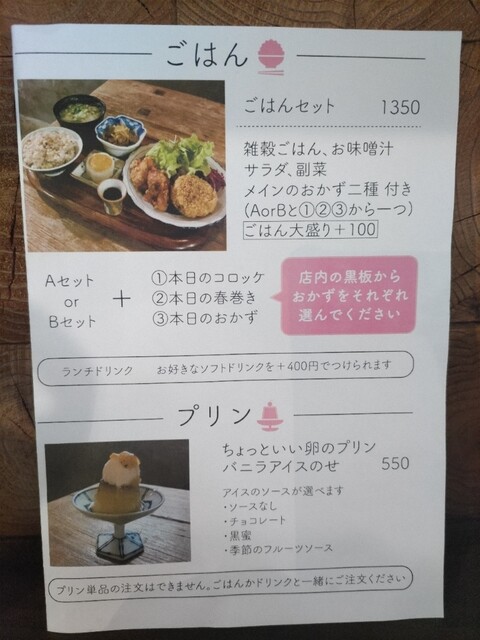 ごはん
ごはんセット 1350
雑穀ごはん、お味噌汁
サラダ、副菜
メインのおかず二種 付き
(AorBと①②③から一つ)
ごはん大盛り＋100
Aセット
or
Bセット
＋
①本日のコロッケ
②本日の春巻き
③本日のおかず
店内の黒板から
おかずをそれぞれ
選んでください
ランチドリンク お好きなソフトドリンクを＋400円でつけられます
プリン
ちょっといい卵のプリン
バニラアイスのせ 550
アイスのソースが選べます
・ソースなし
・チョコレート
・黒蜜
・季節のフルーツソース
プリン単品の注文はできません。ごはんかドリンクと一緒にご注文ください